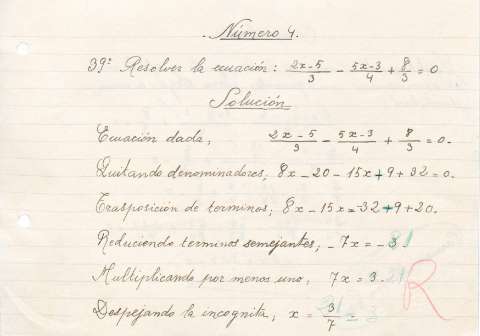 . Número 4.
39º Resolver la ecuación: (2x-5)/3 - (5x-3)/4 + 8/3 = 0
Solución
Ecuación dada, (2x-5)/3 - (5x-3)/4 + 8/3 = 0.
Quitando denominadores, 8x-20-15x+9+32=0.
Trasposición de terminos; 8x-15x=-32+9+20.
Reduciendo terminos semejantes, -7x=-3
Multiplicando por menos uno, 7x=3.
Despejando la incognita, x = 3/7 =
R